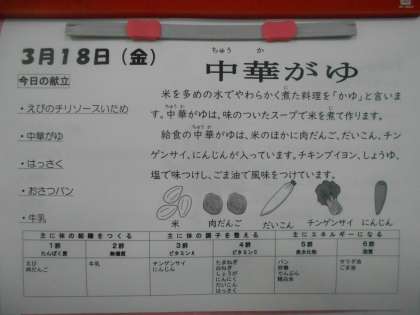 3月18日（金）
今日の献立
・えびのチリソースいため
・中華がゆ
・はっさく
・おさつパン
・牛乳
ちゅう か
中華がゆ
米を多めの水でやわらかく煮た料理を「かゆ」と言いま
す。中華がゆは、味のついたスープで米を煮て作ります。
給食の中華がゆは、米のほかに肉だんご、だいこん、チン
ゲンサイ、にんじんが入っています。チキンブイヨン、しょうゆ、
塩で味つけし、ごま油で風味をつけています。
米 肉だんご だいこん チンゲンサイ にんじん
主に体の組織をつくる 主に体の調子を整える 主にエネルギーになる
1群 2群 3群 4群 5群 6群
たんぱく質 無機質 ビタミンA ビタミンC 炭水化物 脂質
えび 牛乳 チンゲンサイ たまねぎ パン サラダ油
肉だんご にんじん 白ねぎ 砂糖 ごま油
しょうが でんぷん
にんにく 精白米
だいこん
はっさく